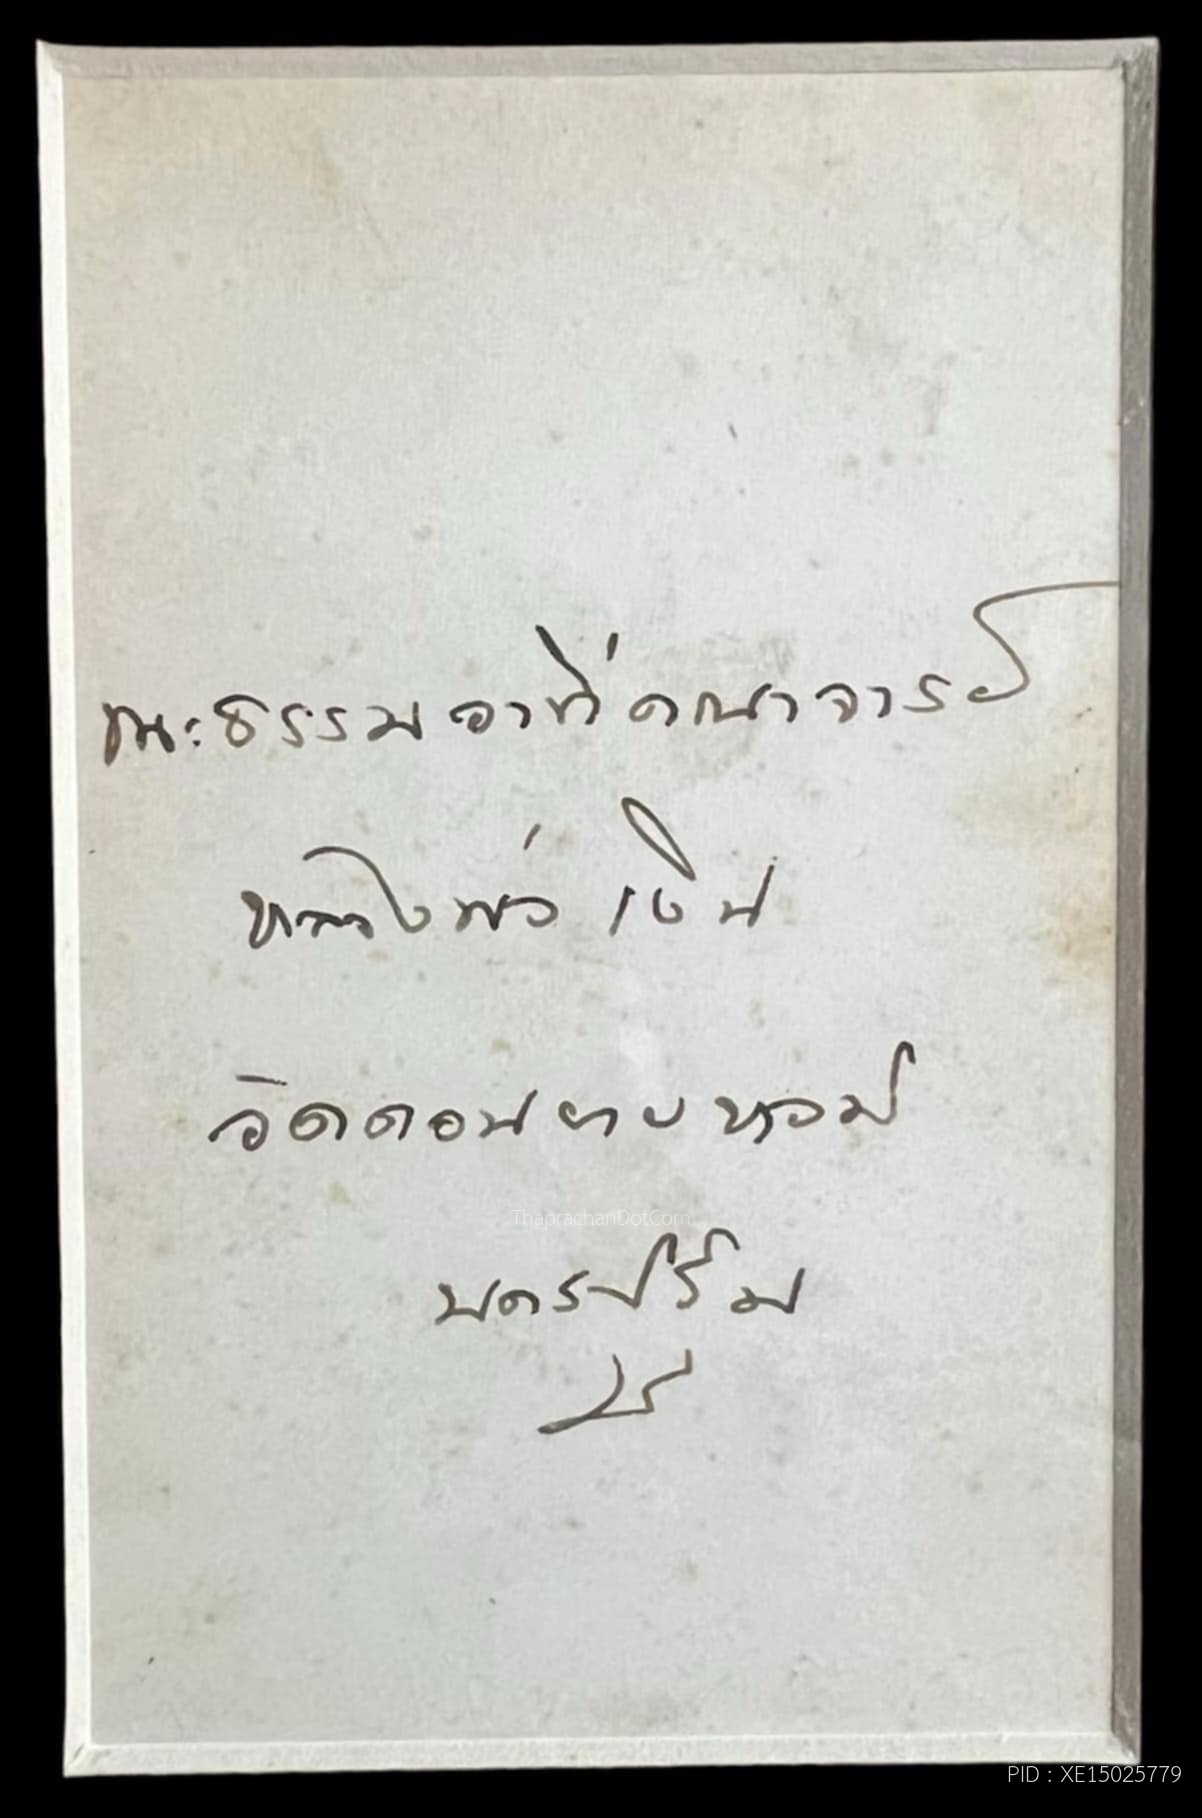 ณะธรรมวาทีคณาจารย์
หลวงพ่อ เงิน
วัดดอนยายหอม
นครปฐม
ThaprachanDotCom
PID : XE15025779